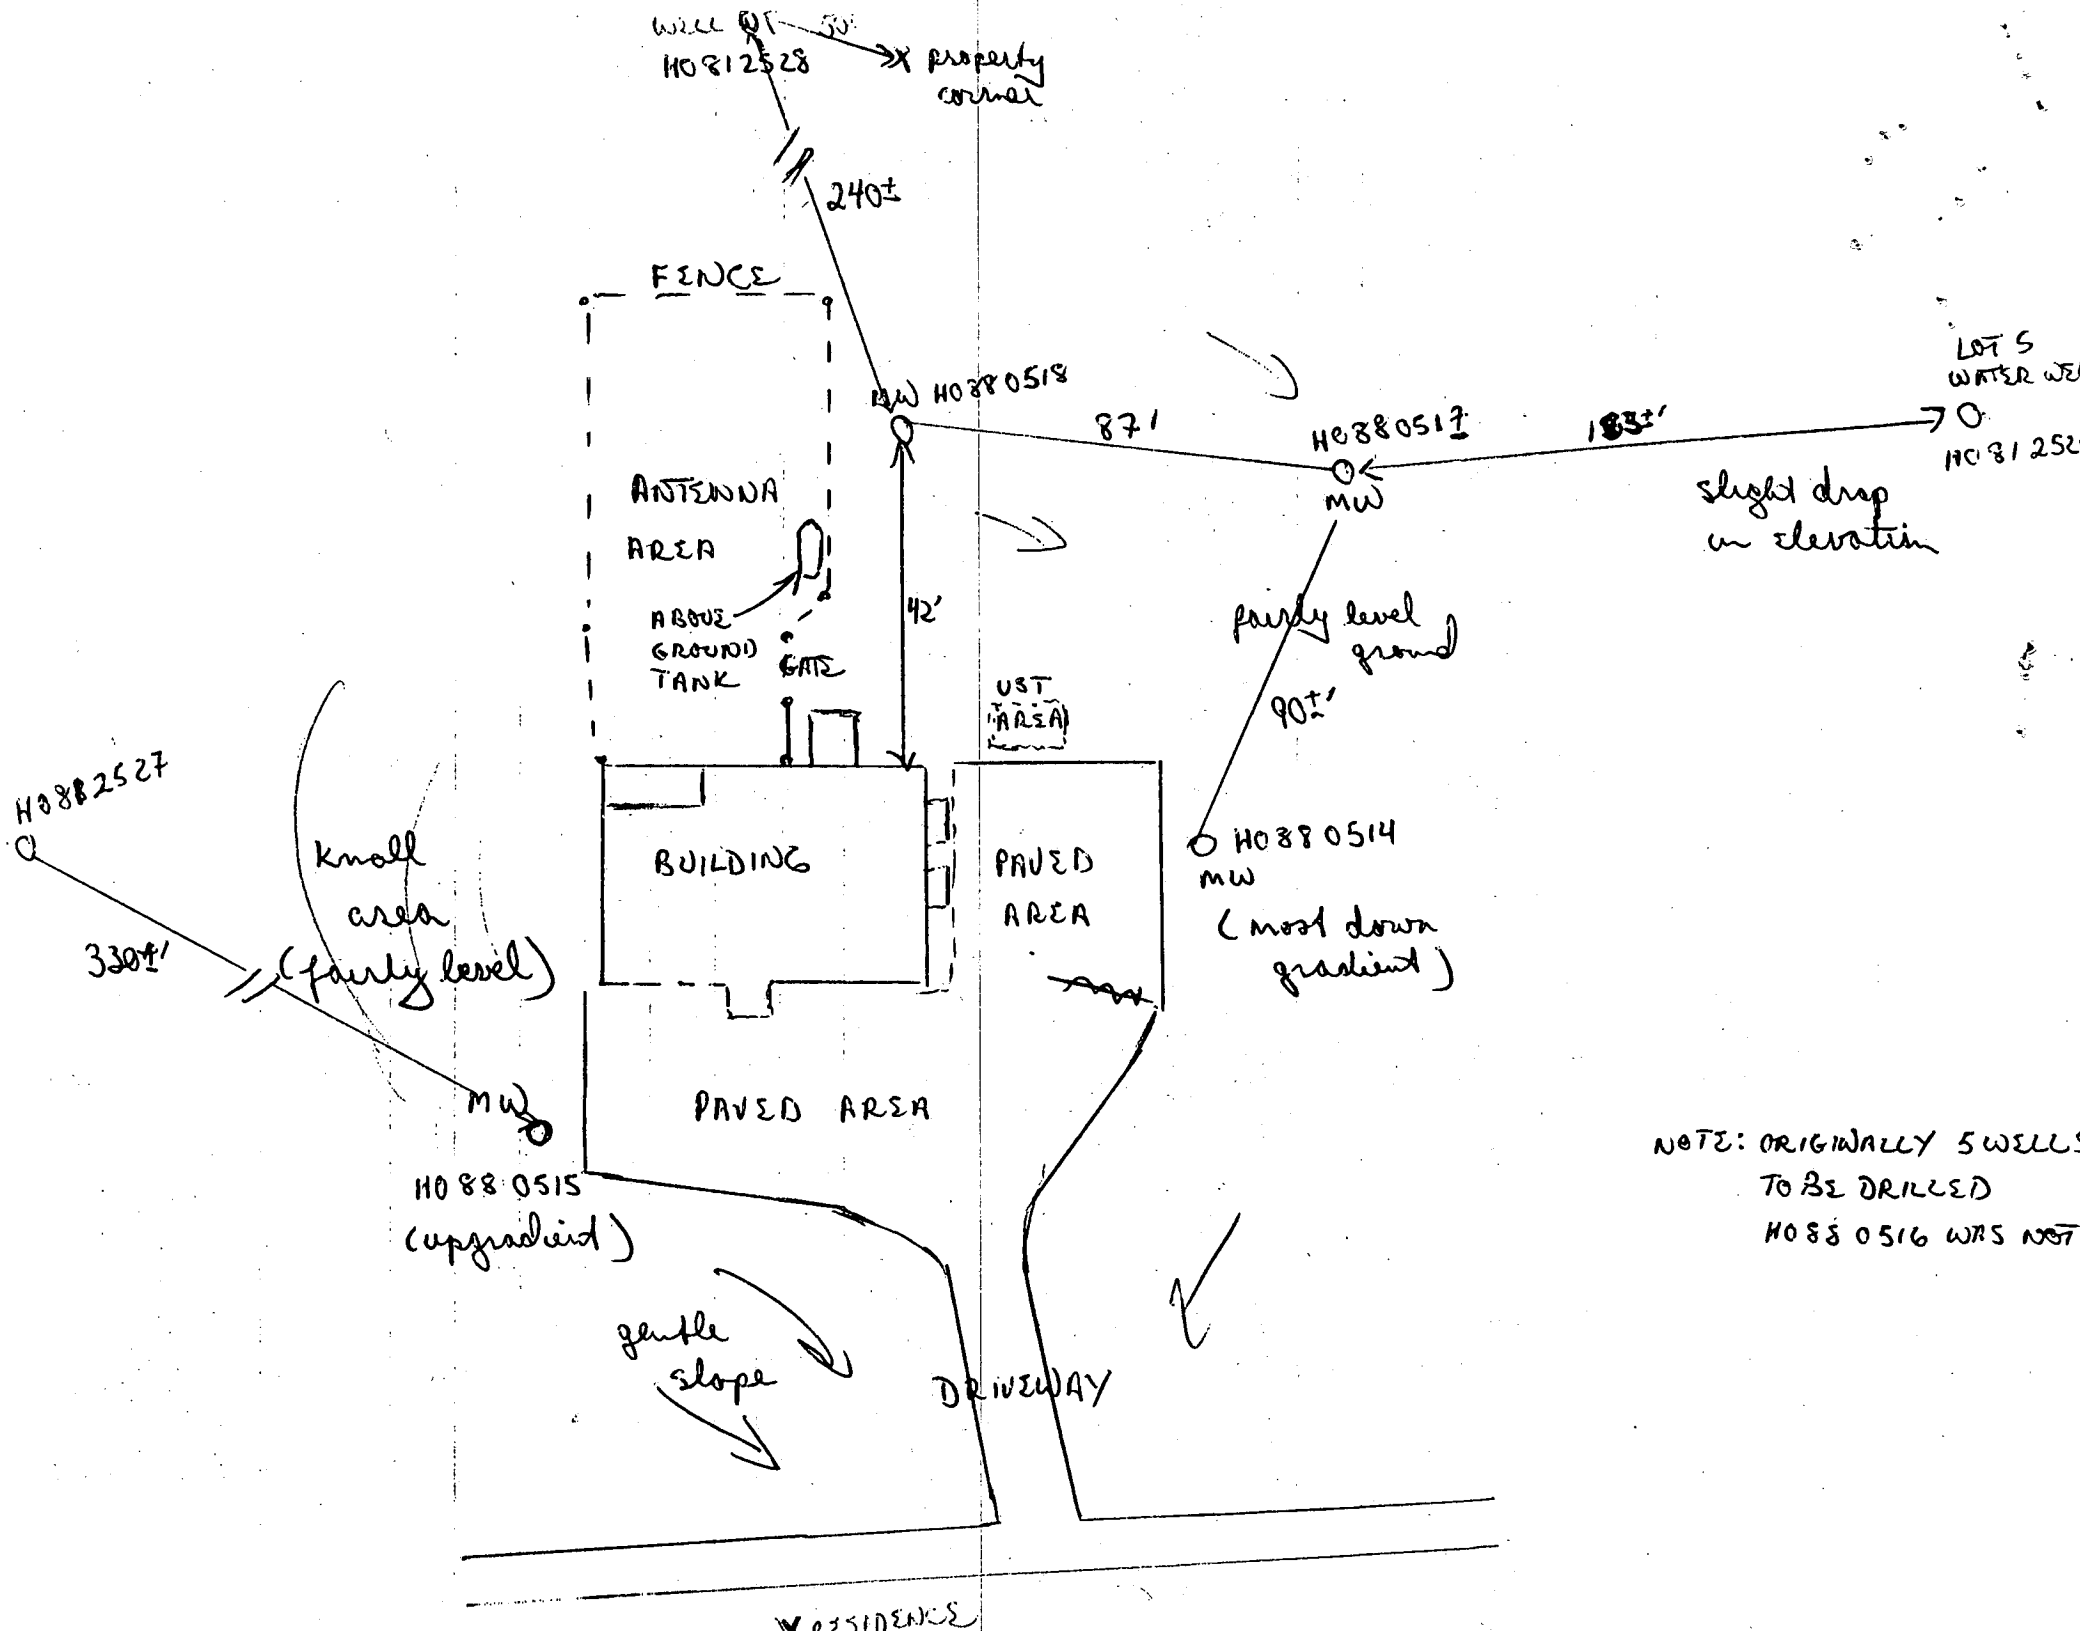 WELL
HO812528
property
corner
240±
FENCE
MW HO880518
87'
HO880517
MW
LOT 5
WATER WE
HO81252
slight drop
in elevation
ANTENNA
AREA
ABOVE
GROUND
TANK
GATE
42'
fairly level
ground
90±'
UST
AREA
HO880514
MW
(most down
gradient)
BUILDING
PAVED
AREA
2527
knoll
area
(fairly level)
330±'
MW
HO880515
(upgradient)
PAVED AREA
NOTE: ORIGINALLY 5 WELLS
TO BE DRILLED
HO880516 WAS NOT
gentle
slope
DRIVEWAY
RESIDENCE